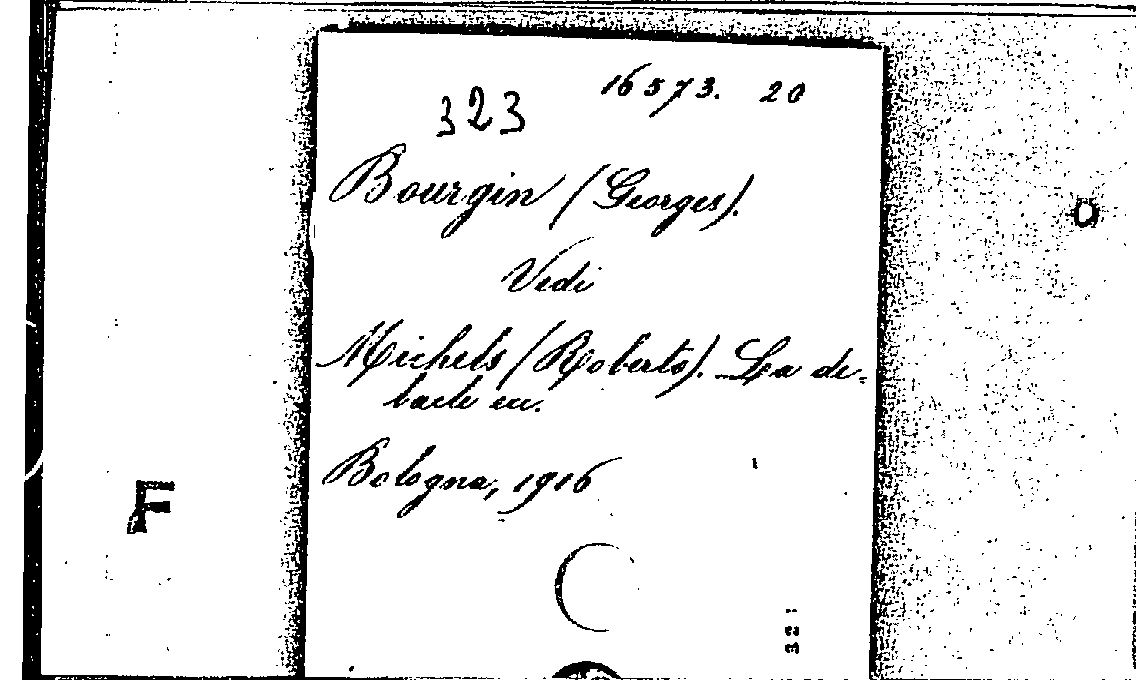 16573. 20
323
Bourgin (Georges).
Vedi
Michels (Roberto). La de-
bacle ecc.
Bologna, 1916
F
321